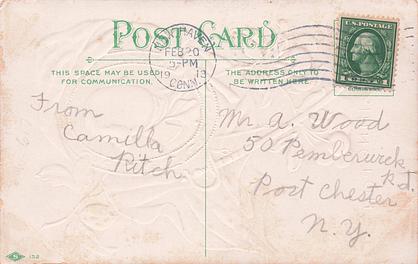 POST CARD
HAVEN
FEB 20
5-PM
1913
CONN.
U.S. POSTAGE
THIS SPACE MAY BE USED
FOR COMMUNICATION.
THE ADDRESS ONLY TO
BE WRITTEN HERE.
From
Camilla
Ritch
Mr. A. Wood
50 Pemberwick
Rd.
Port Chester
N.Y.
S 152